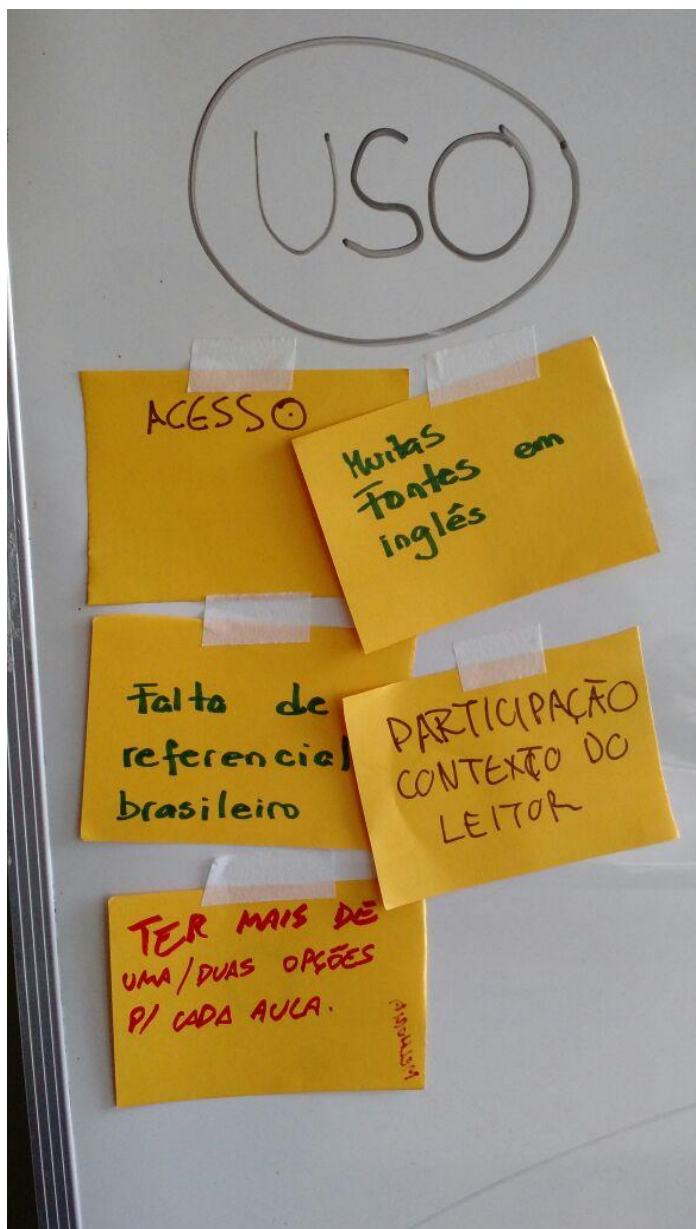 USO
ACESSO
Muitas
Fontes em
inglês
Falta de
referencial
brasileiro
PARTICIPAÇÃO
CONTEXTO DO
LEITOR
TER MAIS DE
UMA/DUAS OPÇÕES
P/ CADA AULA.